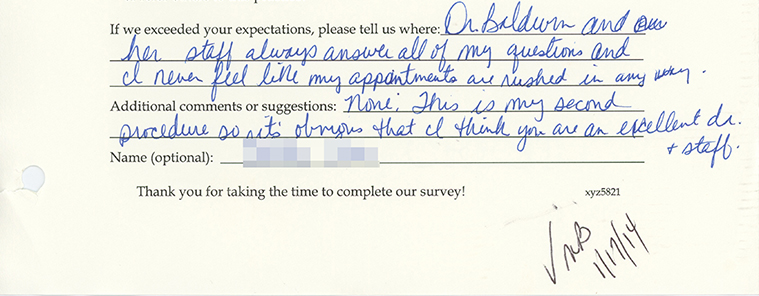 If we exceeded your expectations, please tell us where: Dr. Baldwin and
her staff always answer all of my questions and
I never feel like my appointments are rushed in any way.
Additional comments or suggestions: None; This is my second
procedure so it's obvious that I think you are an excellent dr.
+ staff.
Name (optional):
Thank you for taking the time to complete our survey! xyz5821
1/17/14